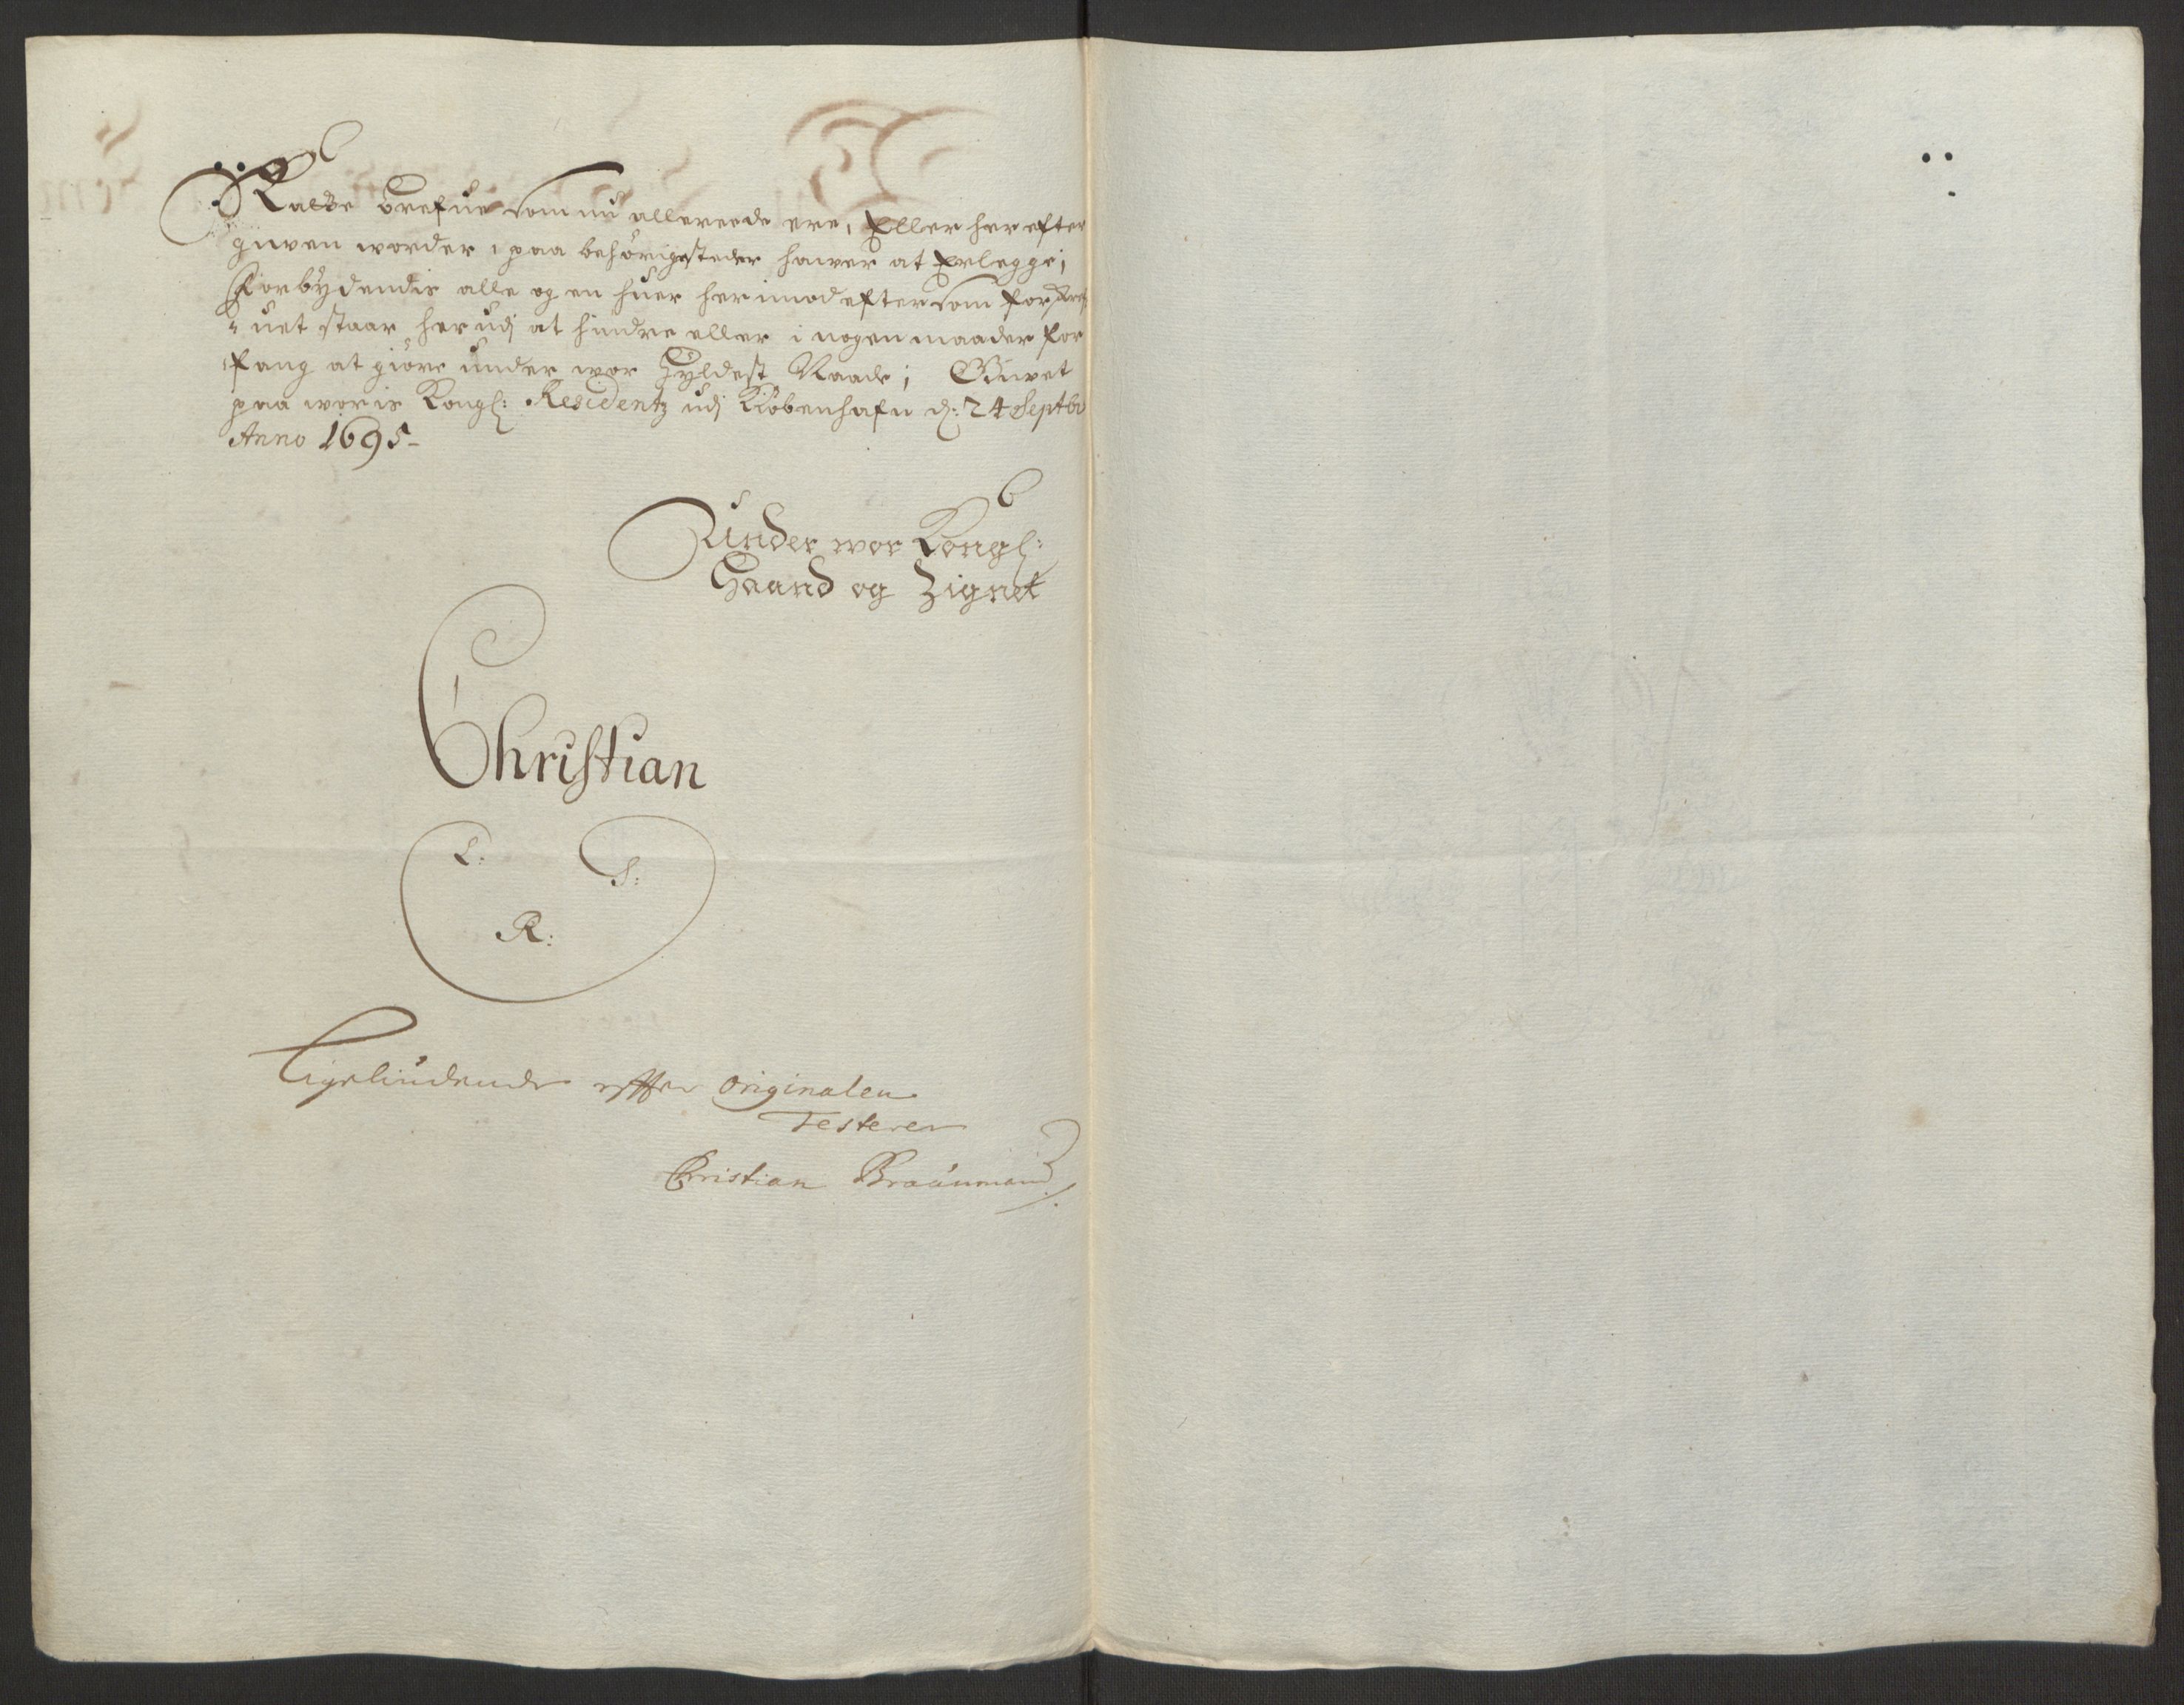 Kalde brefue som nu allereede ere, Eller herefter
giwen worder, paa behørigesteder hawer at Erlegge,
Forbydendis alle og en huer herimod eftersom forskref-
uet staar herudj at hindre eller i nogen maader for
fang at giøre under wor Hyldest Naade; Giwet
paa woris Kongl: Residentz udj Kiøbenhafn d: 24 Septbr
Anno 1695-
Under wor Kongl:
Haand og Zignet
Christian
L: S:
R:
Ligeliudende effter originalen
Testerer
Christian Braunmand